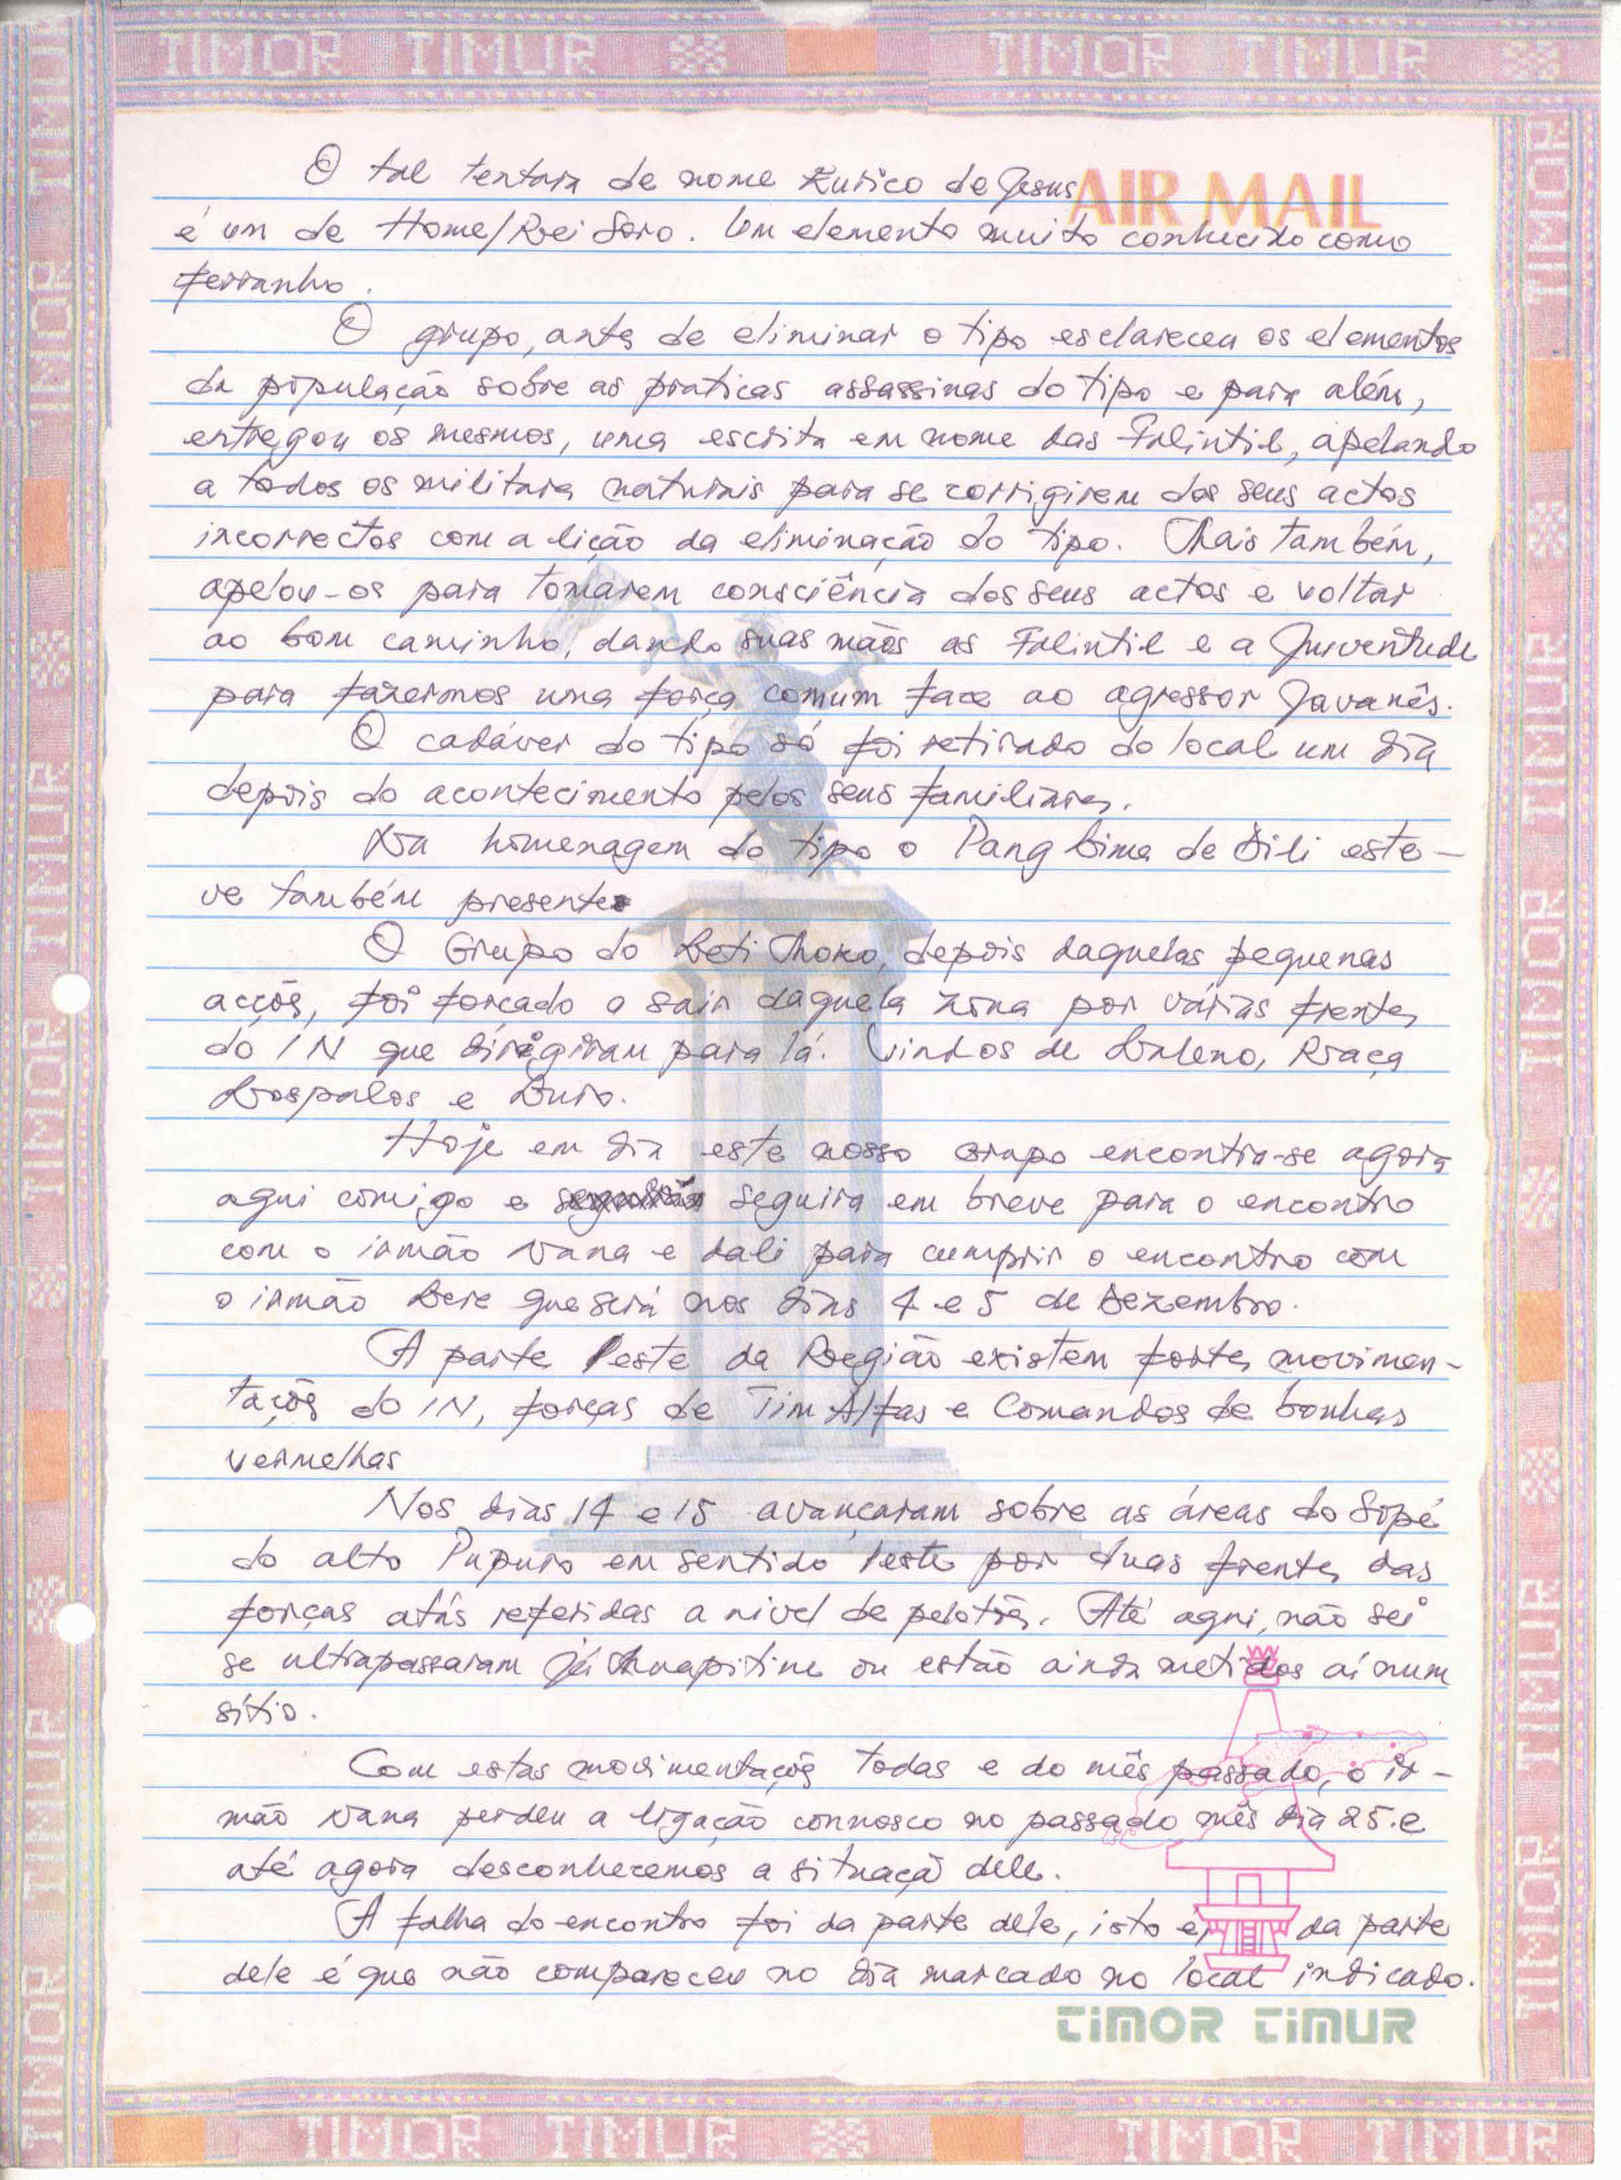 TIMOR TIMUR TIMOR TIMUR
AIR MAIL
O tal tentara de nome Eurico de Jesus
é um de Home/Rei Soro. Um elemento muito conhecido como
ferranho.
O grupo, antes de eliminar o tipo esclareceu os elementos
da população sobre as praticas assassinas do tipo e para além,
entregou os mesmos, uma escrita em nome das Falintil, apelando
a todos os militares naturais para se corrigirem dos seus actos
incorrectos com a lição da eliminação do tipo. Mais também,
apelou-os para tomarem consciência dos seus actos e voltar
ao bom caminho, dando suas mãos as Falintil e a Juventude
para fazermos uma força comum face ao agressor Javanês.
O cadáver do tipo só foi retirado do local um dia
depois do acontecimento pelos seus familiares.
Na homenagem do tipo o Pang bima de Dili este-
ve também presente
O Grupo do Leti Moko, depois daquelas pequenas
acções, foi forçado a sair daquela zona por várias frentes
do IN que dirigiram para lá. Vindos de Laleno, Raça
Lospalos e Luro.
Hoje em dia este nosso grupo encontra-se agora
aqui comigo e seguira em breve para o encontro
com o irmão Nana e dali para cumprir o encontro com
o irmão Lere que será nos dias 4 e 5 de Dezembro.
A parte leste da Região existem fortes movimen-
tações do IN, forças de Tim Alfas e Comandos de bonhas
vermelhas
Nos dias 14 e 15 avançaram sobre as áreas do Sopé
do alto Pupuro em sentido leste por duas frentes das
forças atrás referidas a nivel de pelotões. Até aqui, não sei
se ultrapassaram já ou estão ainda metidos aí num
sítio.
Com estas movimentações todas e do mês passado, o ir-
mão Nana perdeu a ligação connosco no passado mês dia 25. e
até agora desconhecemos a situaçã dele.
A falha do encontro foi da parte dele, isto e, da parte
dele é que não compareceu no dia marcado no local indicado.
TIMOR TIMUR
TIMOR TIMUR TIMOR TIMUR